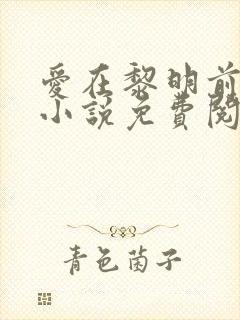 愛在黎明前
小說免費閱
青色菌子